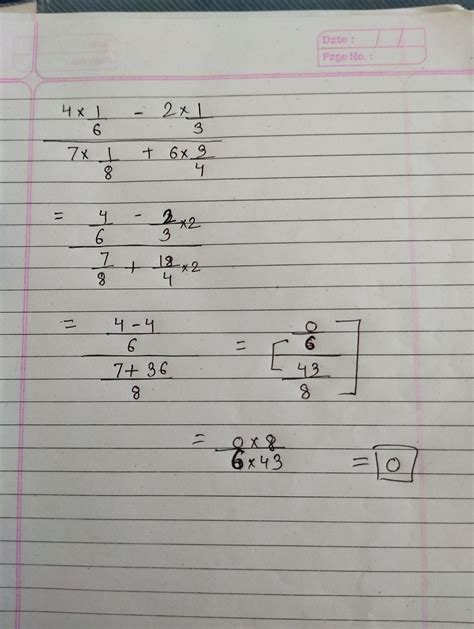 Date : / /
Page No. :
4 × 1/6 - 2 × 1/3
7 × 1/8 + 6 × 3/4
= 4/6 - 2/3 ×2
7/8 + 18/4 ×2
= 4 - 4 / 6 = [ 0/6
7 + 36 / 8 43/8 ]
= 0 × 8 / 6 × 43 = 0